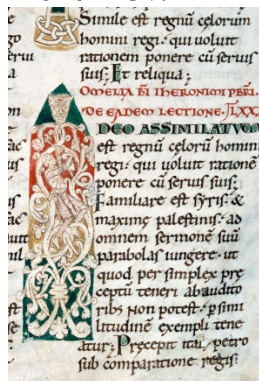 Simile est regnũ celorum
homini regi · qui uoluit
rationem ponere cũ seruis
suis; Et reliqua;
OMELIA BI IHERONIMI PBRI.
DE EADEM LECTIONE · LXXX
IDEO ASSIMILATVM
est regnũ celorũ homini
regi · qui uoluit rationẽ
ponere cũ seruis suis;
Familiare est syris &
maxime palestinis · ad
omnem sermonẽ suũ
parabolas iungere · ut
quod per simplex pre
ceptũ teneri ab audito
ribꝫ non potest · p simi
litudinẽ exempli tene
atur; Precepit itaq petro
sub comparatione regis